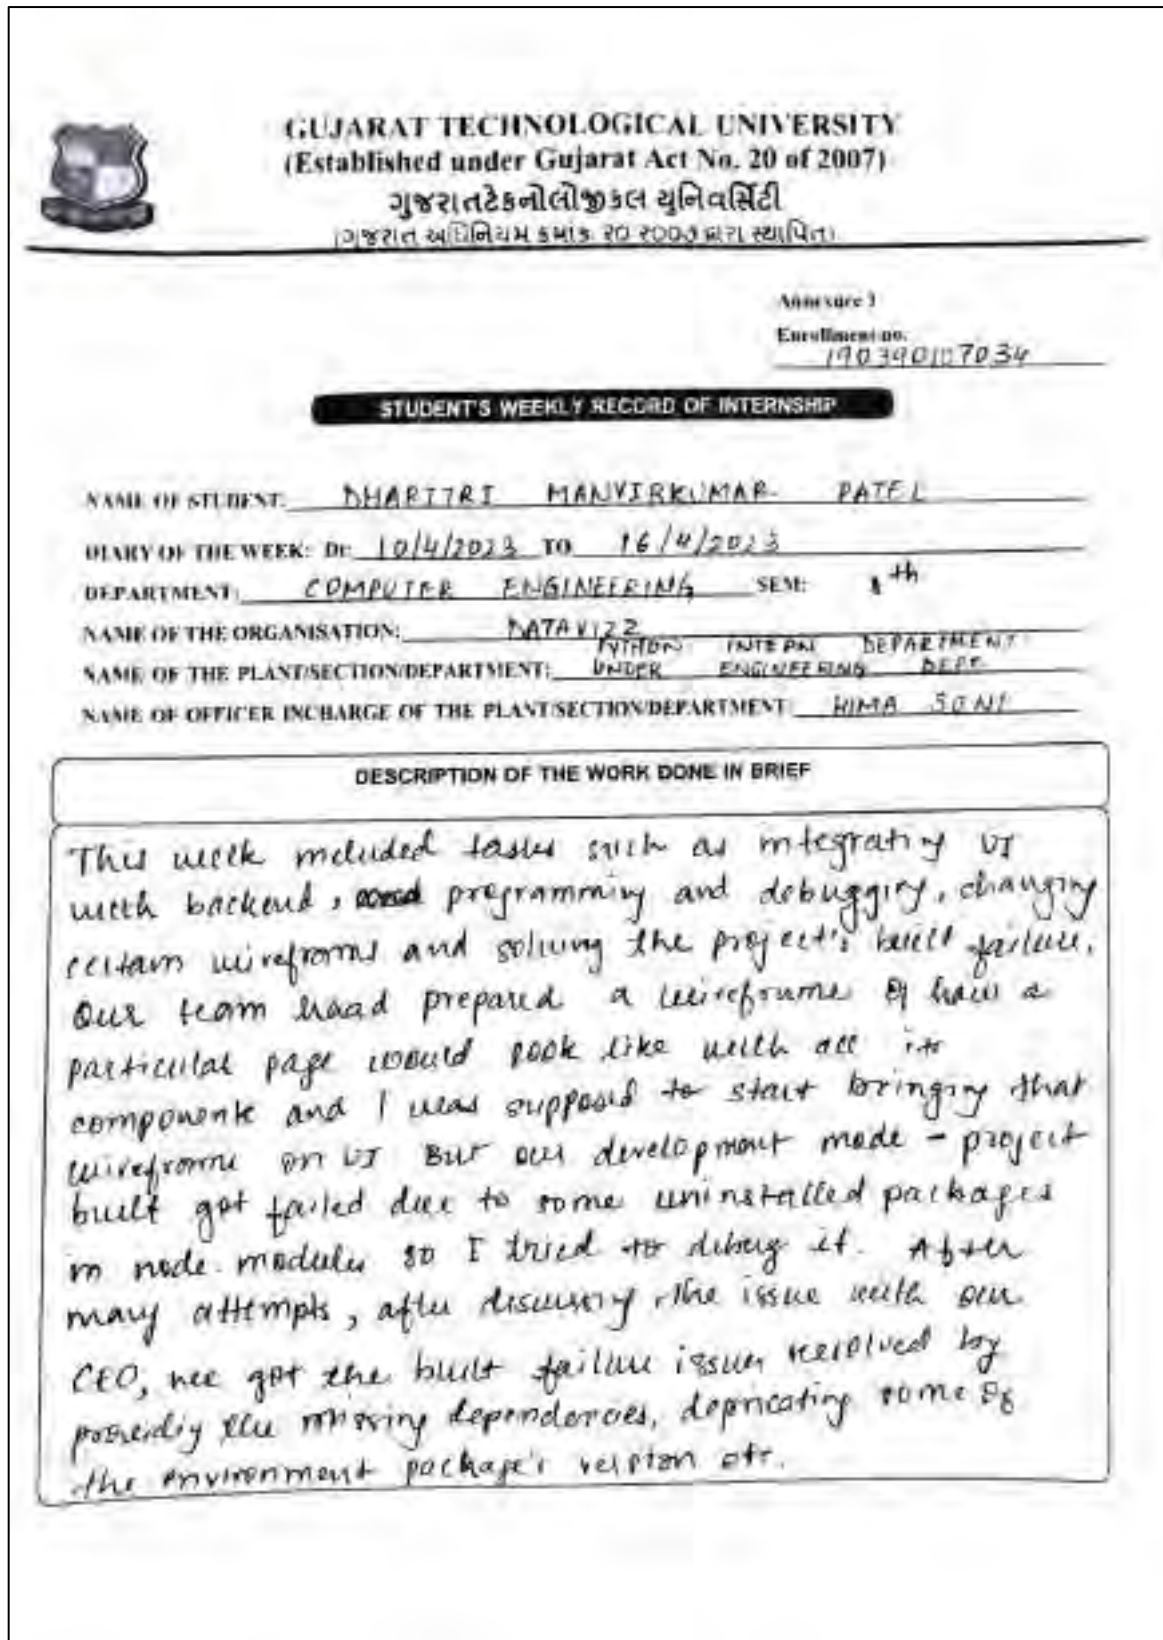 GUJARAT TECHNOLOGICAL UNIVERSITY
(Established under Gujarat Act No. 20 of 2007)
ગુજરાતટેકનોલોજીકલ યુનિવર્સિટી
(ગુજરાત અધિનિયમ ક્રમાંક: ૨૦ ૨૦૦૭ દ્વારા સ્થાપિત)
Annexure 3
Enrollment no.
190390107034
STUDENT'S WEEKLY RECORD OF INTERNSHIP
NAME OF STUDENT: DHARITRI MANVIRKUMAR PATEL
DIARY OF THE WEEK: Dt: 10/4/2023 TO 16/4/2023
DEPARTMENT: COMPUTER ENGINEERING SEM: 8th
NAME OF THE ORGANISATION: DATAVIZZ
PYTHON INTERN DEPARTMENT
NAME OF THE PLANT/SECTION/DEPARTMENT: UNDER ENGINEERING DEPT.
NAME OF OFFICER INCHARGE OF THE PLANT/SECTION/DEPARTMENT: HIMA SONI
DESCRIPTION OF THE WORK DONE IN BRIEF
This week included tasks such as integrating UI
with backend, programming and debugging, changing
certain wireframs and solving the project's built failure.
Our team haad prepared a wireframe of how a
particular page would look like with all its
components and I was supposed to start bringing that
wireframe on UI But our development mode - project
built got failed due to some uninstalled packages
in node modules so I tried to debug it. After
many attempts, after discussing the issue with our
CEO, we got the built failure issues resolved by
providing the missing dependencies, depricating some of
the environment package's version etc.